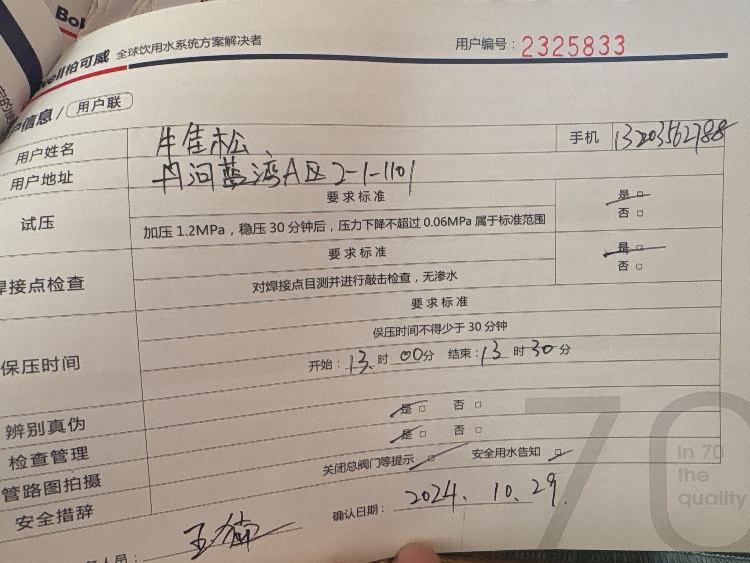 柏可威 全球饮用水系统方案解决者
用户编号：2325833
户信息 / 用户联
用户姓名 牛佳松 手机 13203562788
用户地址 丹河蓝湾A区2-1-1101
要求标准
试压 是 □
否 □
加压 1.2MPa，稳压 30 分钟后，压力下降不超过 0.06MPa 属于标准范围
要求标准
焊接点检查 是 □
否 □
对焊接点目测并进行敲击检查，无渗水
要求标准
保压时间不得少于 30 分钟
保压时间
开始：13 时 00 分 结束：13 时 30 分
辨别真伪 是 □ 否 □
检查管理 是 □ 否 □
管路图拍摄 关闭总阀门等提示 □ 安全用水告知 □
安全措辞
确认日期：2024. 10. 29.
人员：
70
In 70
the
quality